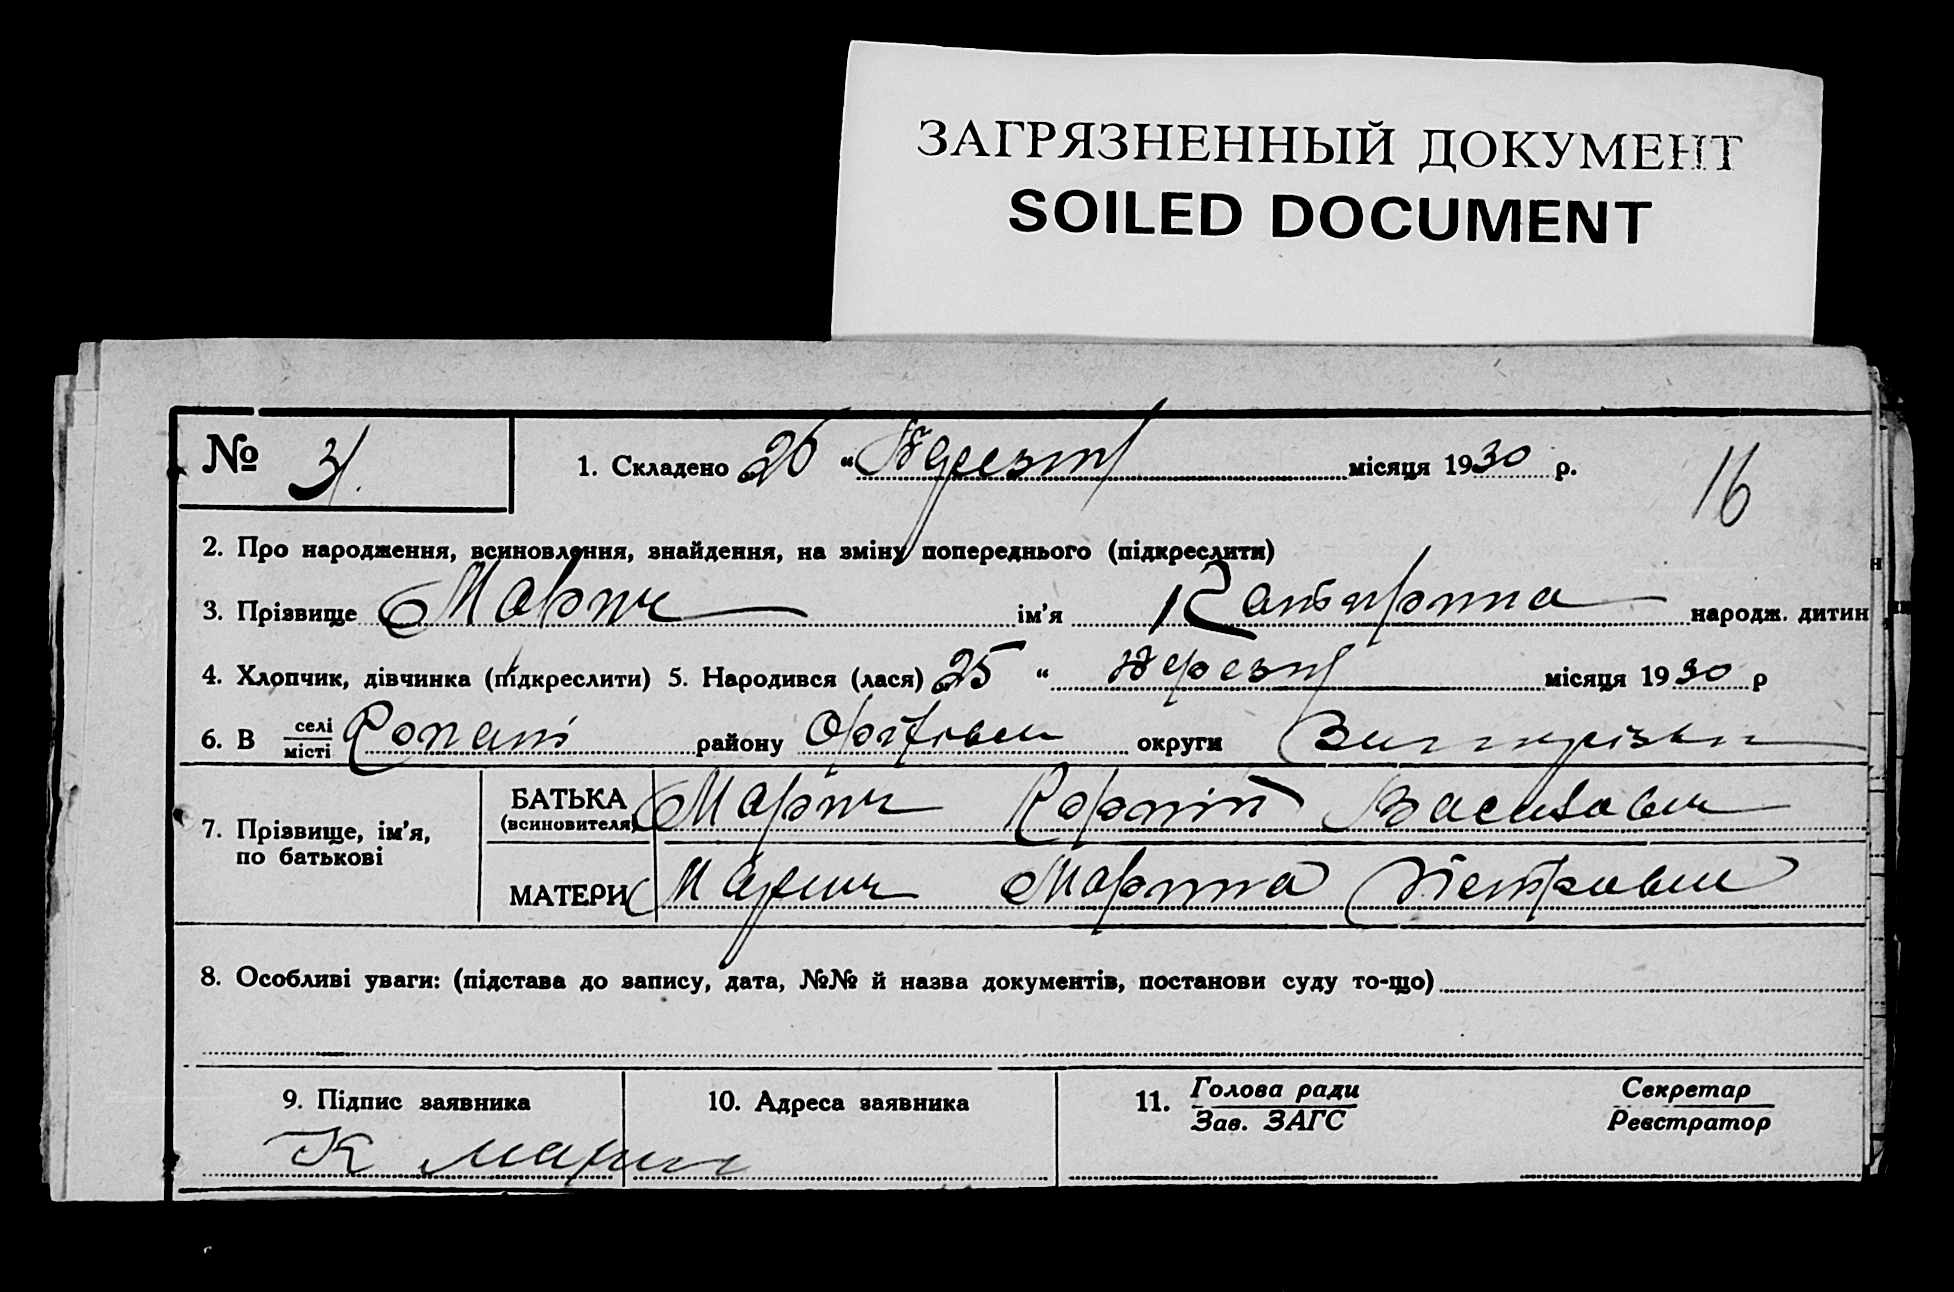 ЗАГРЯЗНЕННЫЙ ДОКУМЕНТ
SOILED DOCUMENT
№ 31.
1. Складено „26“ місяця 1930 р.
16
2. Про народження, всиновлення, знайдення, на зміну попереднього (підкреслити)
3. Прізвище Марич ім’я Катирина народж. дитин
4. Хлопчик, дівчинка (підкреслити) 5. Народився (лася) „25“ місяця 1930 р
6. В селі місті Ропаті району округи
7. Прізвище, ім’я, по батькові
БАТЬКА (всиновителя) Марич Корній Василович
МАТЕРИ Марич Марина Петровна
8. Особливі уваги: (підстава до запису, дата, №№ й назва документів, постанови суду то-що)
9. Підпис заявника
10. Адреса заявника
11. Голова ради Зав. ЗАГС
Секретар Реєстратор
К Марич